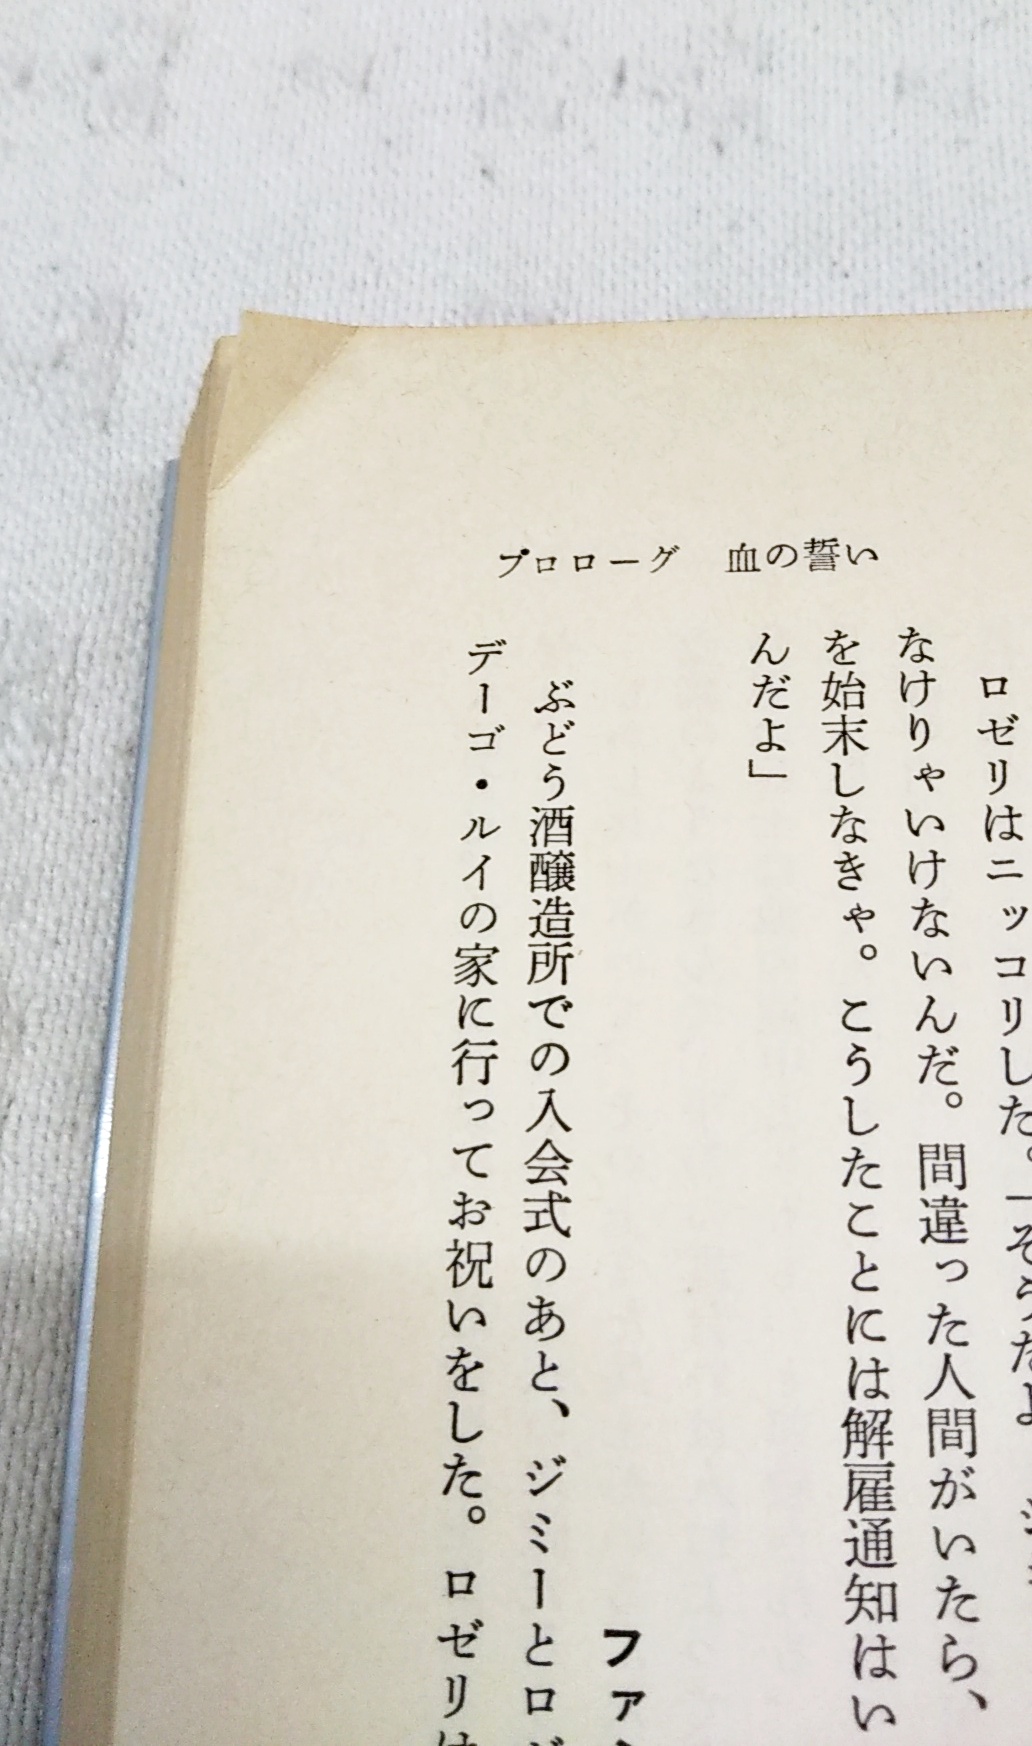 プロローグ 血の誓い
ロゼリはニッコリした。「そうだよ
なけりゃいけないんだ。間違った人間がいたら、
を始末しなきゃ。こうしたことには解雇通知はい
んだよ」
ファ
ぶどう酒醸造所での入会式のあと、ジミーとロ
デーゴ・ルイの家に行ってお祝いをした。ロゼリは